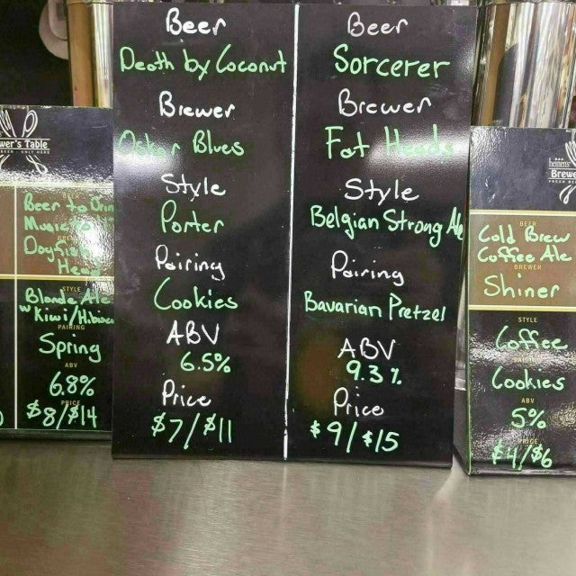 wer's Table
Beer to Drin
Music to
Dogfish
Head
STYLE
Blonde Ale
w Kiwi/Hibiscu
PAIRING
Spring
ABV
6.8%
PRICE
$8/$14
Beer
Death by Coconut
Brewer
Oskar Blues
Style
Porter
Pairing
Cookies
ABV
6.5%
Price
$7/$11
Beer
Sorcerer
Brewer
Fat Heads
Style
Belgian Strong Ale
Pairing
Bavarian Pretzel
ABV
9.3%
Price
$9/$15
Brewe
BEER
Cold Brew
Coffee Ale
BREWER
Shiner
STYLE
Coffee
PAIRING
Cookies
ABV
5%
PRICE
$4/$6